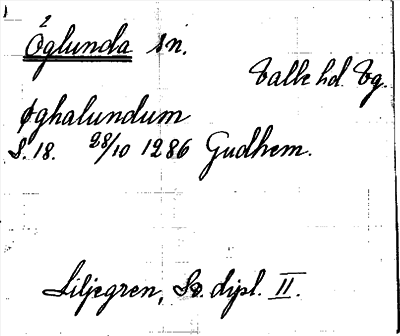 2
Öglunda sn.
Valle hd. Vg.
Øghalundum
S. 18. 28/10 1286 Gudhem.
Liljegren, Sv. dipl. II.